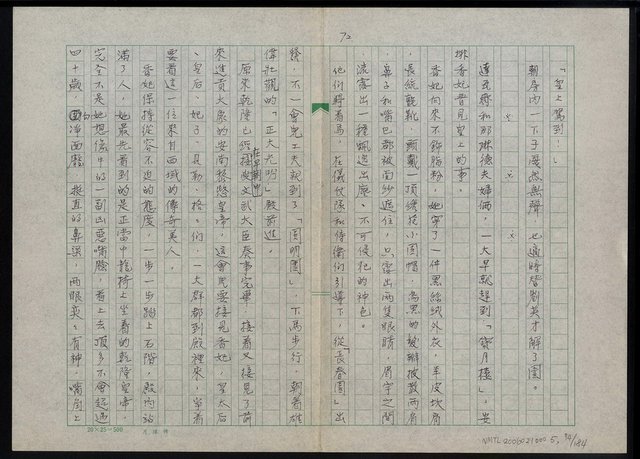 72
「皇上駕到！」
朝房內一下子戛然無聲，也適時替劉英才解了圍。
× × ×
達瓦齊和那琳德夫婦倆，一大早就趕到「寶月樓」，安
排香妃晉見皇上的事。
香妃向來不飾脂粉，她穿了一件黑絲絨外衣，羊皮坎肩
，長統氈靴，頭戴一頂繡花小圓帽，烏黑的髮辮披散兩肩
，鼻子和嘴巴都被面紗遮住，只露出兩隻眼睛，眉宇之間
流露出一種飄逸出塵、不可侵犯的神色。
他們騎著馬，在儀仗隊和侍衛們引導下，從「長春園」出
發，不一會兒工夫就到了「圓明園」，下馬步行，朝著雄
偉壯觀的「正大光明」殿前進。
原來乾隆已經在早朝中接受文武大臣奏事完畢，接著又接見了前
來進貢大象的安南
皇帝，這會兒要接見香妃，皇太后
、皇后、妃子、貝勒、格格們，一大群都到殿裡來，爭著
要看這一位來自西域的傳奇美人。
香妃保持從容不迫的態度，一步一步踏上石階，殿內站
滿了人，她最先看到的是正當中龍椅上坐著的乾隆皇帝，
完全不是她想像中的一副凶惡嘴臉，看上去頂多不會超過
四十歲，白淨面龐，挺直的鼻梁，兩眼炯炯有神，嘴角上
20×25=500
NMTL20050021000 5, 74/184